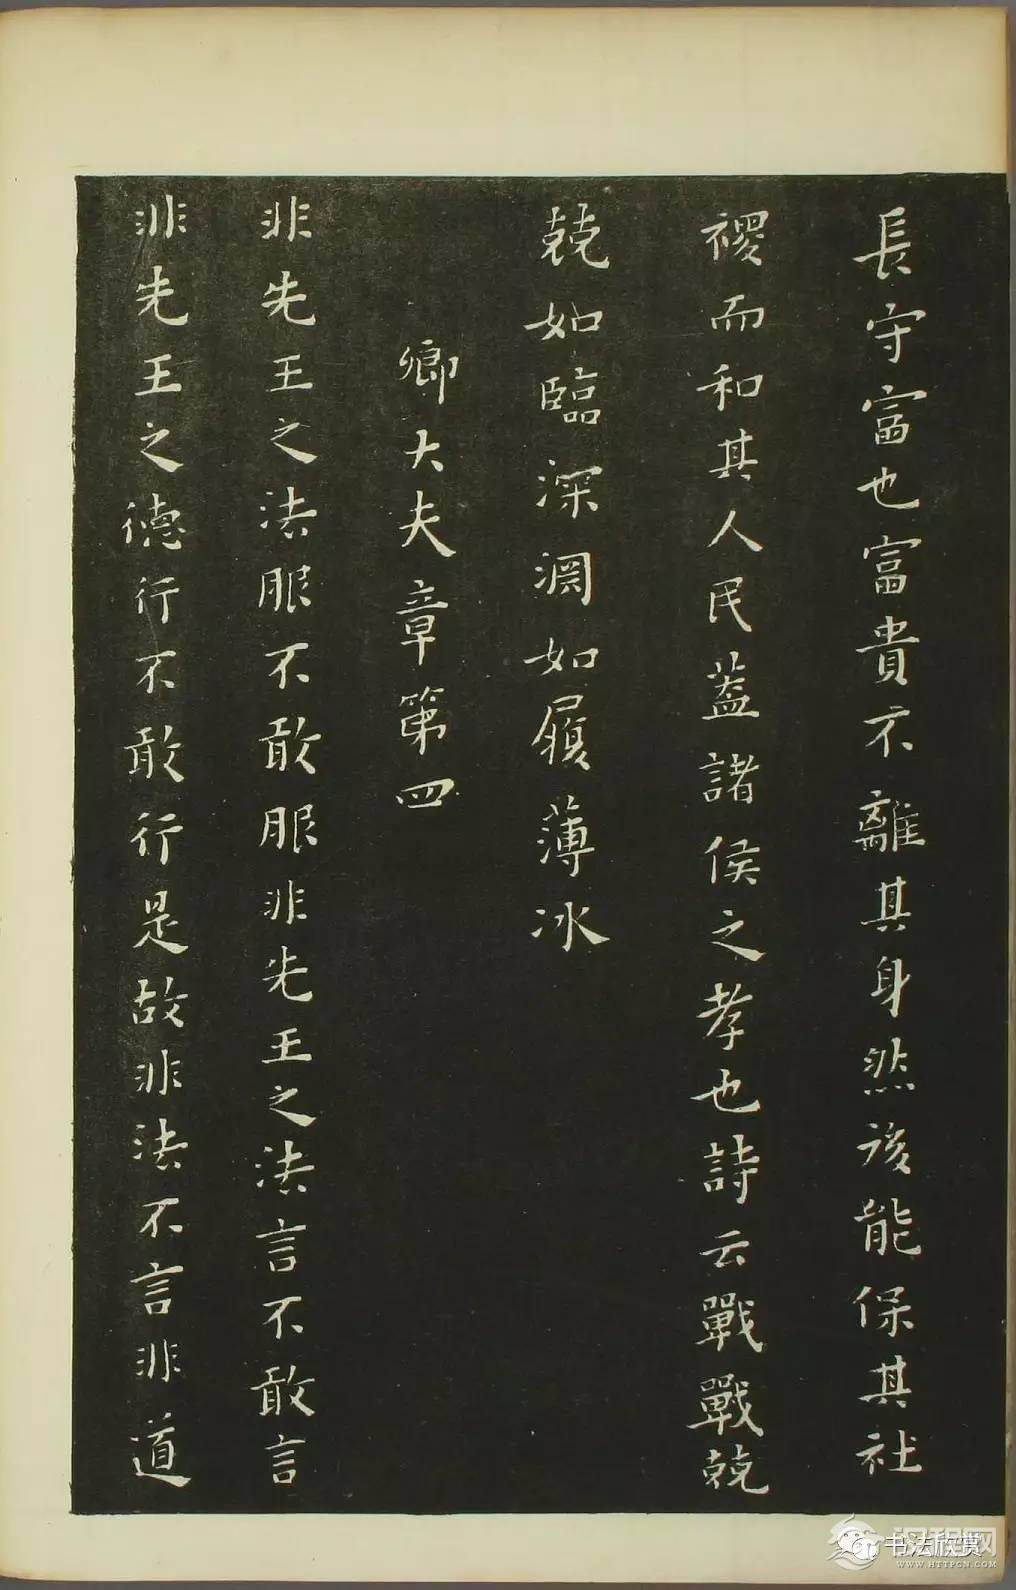 長守富也富貴不離其身然後能保其社
稷而和其人民蓋諸侯之孝也詩云戰戰兢
兢如臨深淵如履薄冰
卿大夫章第四
非先王之法服不敢服非先王之法言不敢言
非先王之德行不敢行是故非法不言非道
书法欣赏
WWW.HTTPCN.COM